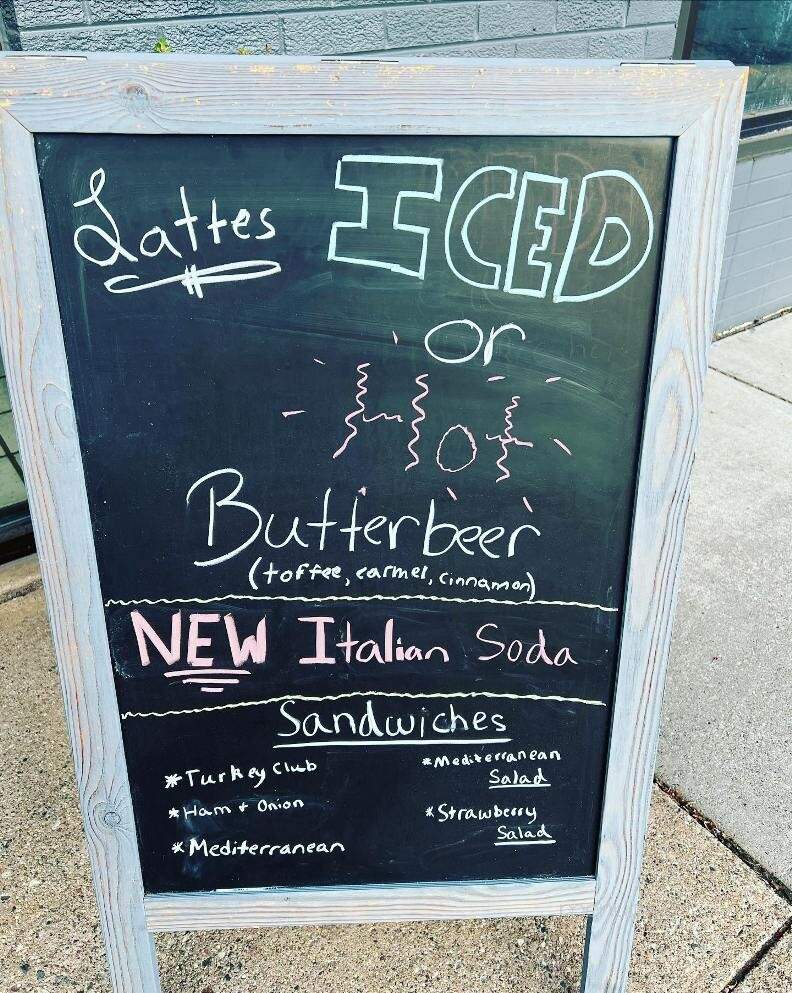 Lattes ICED
or
Hot
Butterbeer
(toffee, carmel, cinnamon)
NEW Italian Soda
Sandwiches
*Turkey Club
*Ham + Onion
*Mediterranean
*Mediterranean
Salad
*Strawberry
Salad